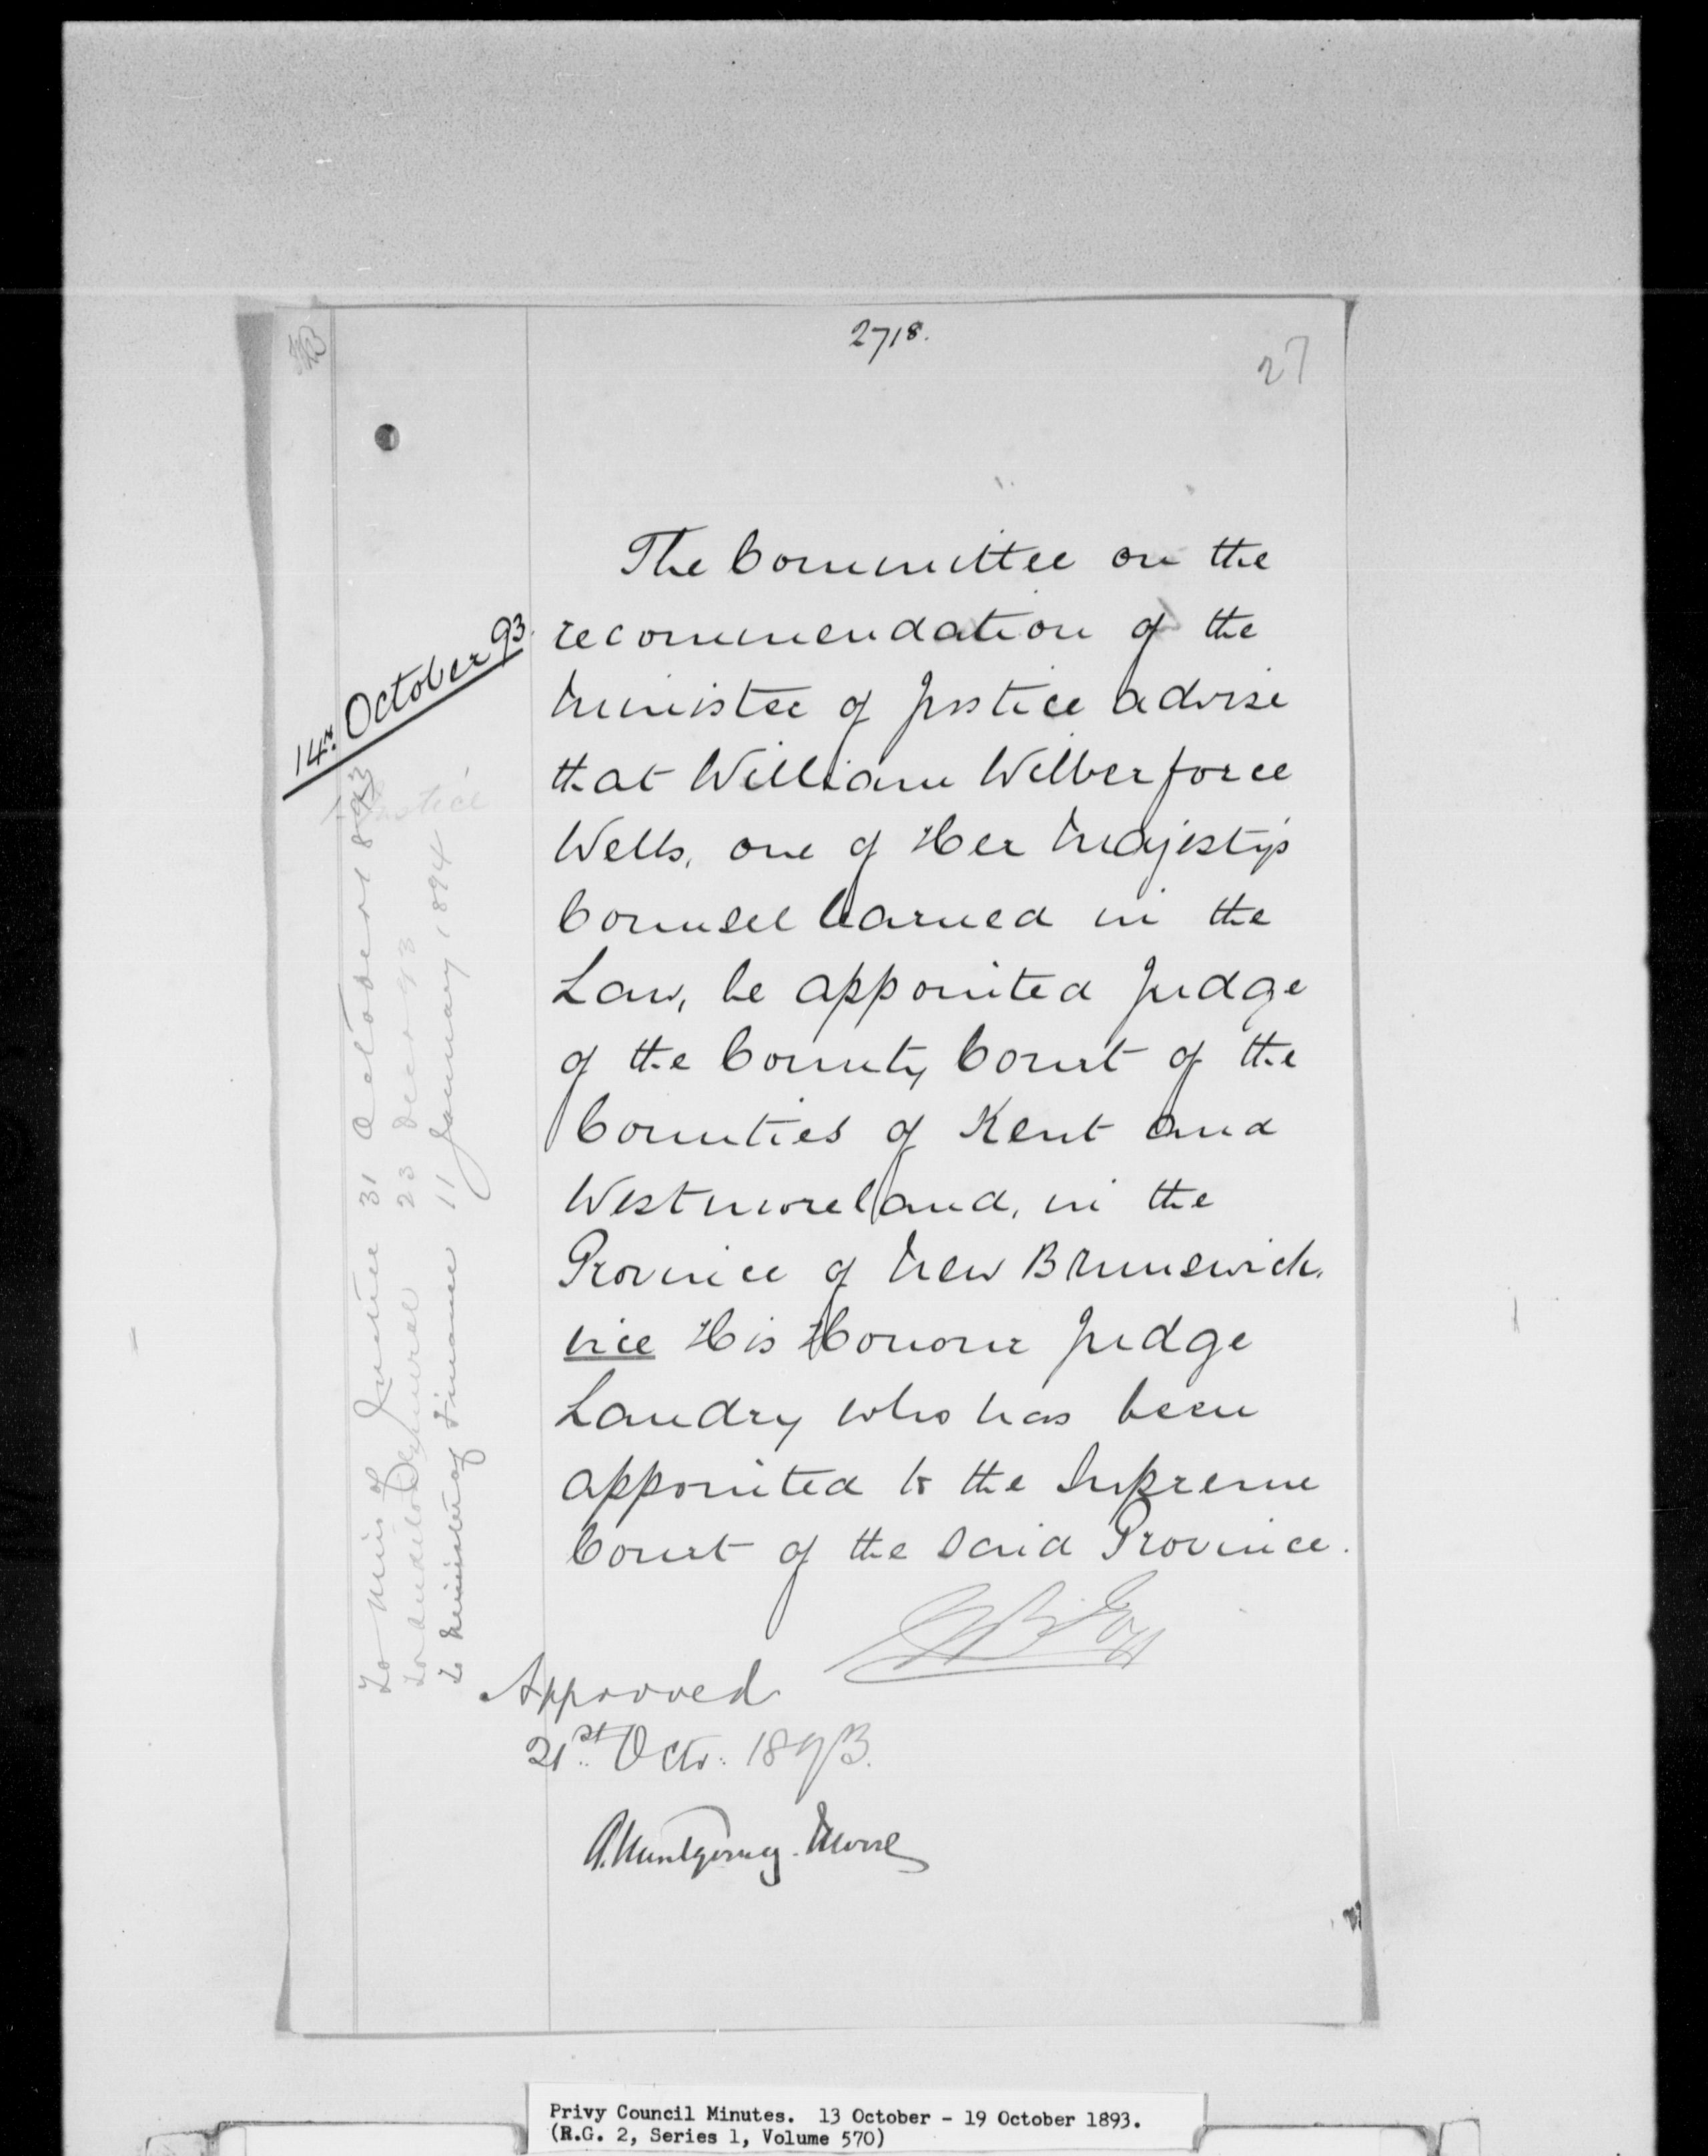 2718.
27
14th. October 93.
The Committee on the
recommendation of the
Minister of Justice advise
that William Wilberforce
Wells, one of Her Majesty's
Counsel learned in the
Law, be appointed Judge
of the County Court of the
Counties of Kent and
Westmoreland, in the
Province of New Brunswick,
vice His Honour Judge
Landry who has been
appointed to the Supreme
Court of the said Province.
Approved
21st Octr: 1893.
A. Montgomery. Moore
Justice
To Min of Justice 31 October 1893
To Auditor General 23 Dec 93
To Minister of Finance 11 January, 1894
Privy Council Minutes. 13 October - 19 October 1893.
(R.G. 2, Series 1, Volume 570)